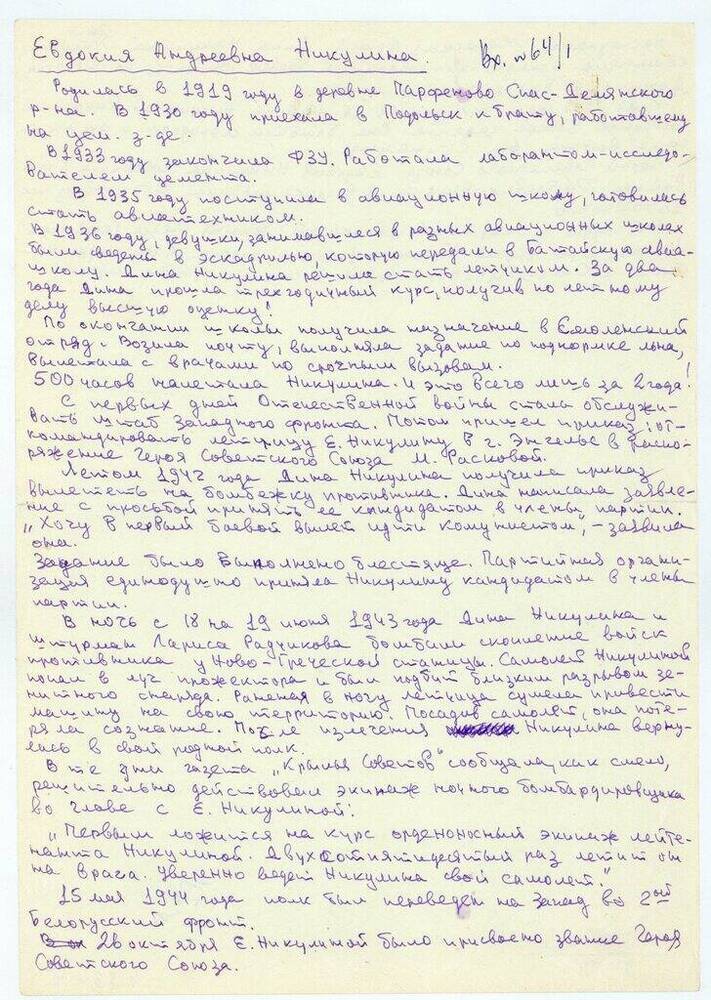 Евдокия Андреевна Никулина. Вх. №64/1
Родилась в 1919 году в деревне Парфеново Спас-Демянского
р-на. В 1930 году приехала в Подольск к брату, работавшему
на цем. з-де.
В 1933 году закончила ФЗУ. Работала лаборантом-исследо-
вателем цемента.
В 1935 году поступила в авиационную школу, готовилась
стать авиатехником.
В 1936 году, девушки, занимавшиеся в разных авиационных школах
были сведены в эскадрилью, которую передали в Батайскую авиа-
школу. Дина Никулина решила стать летчиком. За два
года Дина прошла трехгодичный курс, получив по летному
делу высшую оценку!
По окончании школы получила назначение в Смоленский
отряд. Возила почту, выполняла задание по подкормке льна,
вылетала с врачами по срочным вызовам.
500 часов налетала Никулина. И это всего лишь за 2 года!
С первых дней Отечественной войны стала обслужи-
вать штаб Западного фронта. Потом пришел приказ: от-
командировать летчицу Е. Никулину в г. Энгельс в распо-
ряжение Героя Советского Союза М. Расковой.
Летом 1942 года Дина Никулина получила приказ
вылететь на бомбежку противника. Дина написала заявле-
ние с просьбой принять ее кандидатом в члены партии.
„Хочу в первый боевой вылет идти комунистом", – заявила
она.
Задание было выполнено блестяще. Партийная органи-
зация единодушно приняла Никулину кандидатом в члены
партии.
В ночь с 18 на 19 июня 1943 года Дина Никулина и
штурман Лариса Радчикова бомбили скопление войск
противника у Ново-Греческой станицы. Самолет Никулиной
попал в луч прожектора и был подбит близким разрывом зе-
нитного снаряда. Раненая в ногу летчица сумела привести
машину на свою территорию. Посадив самолет, она поте-
ряла сознание. После излечения Никулина верну-
лась в свой родной полк.
В те дни газета „Крылья Советов" сообщала, как смело,
решительно действовал экипаж ночного бомбардировщика
во главе с Е. Никулиной:
„Первым ложится на курс орденоносный экипаж лейте-
нанта Никулиной. Двухсотпятидесятый раз летит он
на врага. Уверенно ведет Никулина свой самолет."
15 мая 1944 года полк был переведен на Запад во 2ой
Белорусский фронт.
26 октября Е. Никулиной было присвоено звание Героя
Советского Союза.